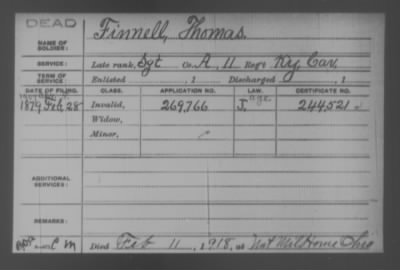 DEAD
NAME OF SOLDIER: Finnell, Thomas.
SERVICE: Late rank, Sgt Co. A, 11 Reg't Ky. Cav.
TERM OF SERVICE: Enlisted , 1 Discharged , 1
DATE OF FILING. CLASS. APPLICATION NO. LAW. CERTIFICATE NO.
1879 Feb. 28 Invalid, 269,766 J. age. 244,521
Widow,
Minor,
ADDITIONAL SERVICES:
REMARKS:
C M Died Feb 11, 1918, at Nat Mil Home Ohio